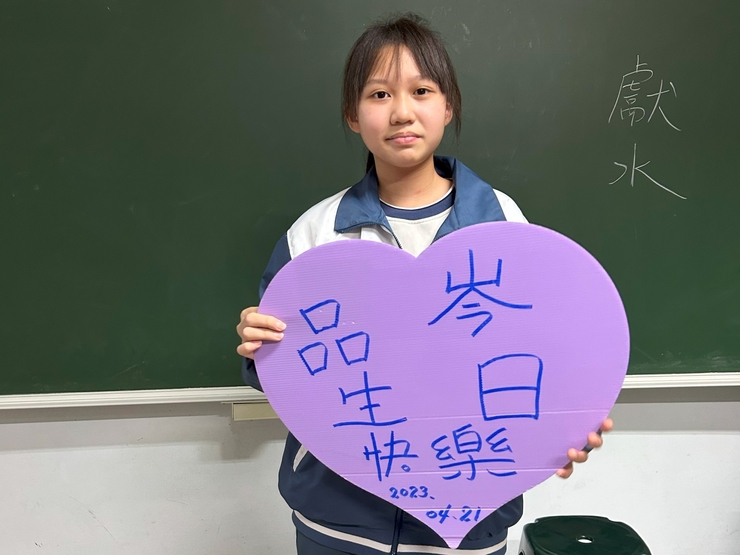 品岑
生日
快樂
2023.
04.21
獻
水